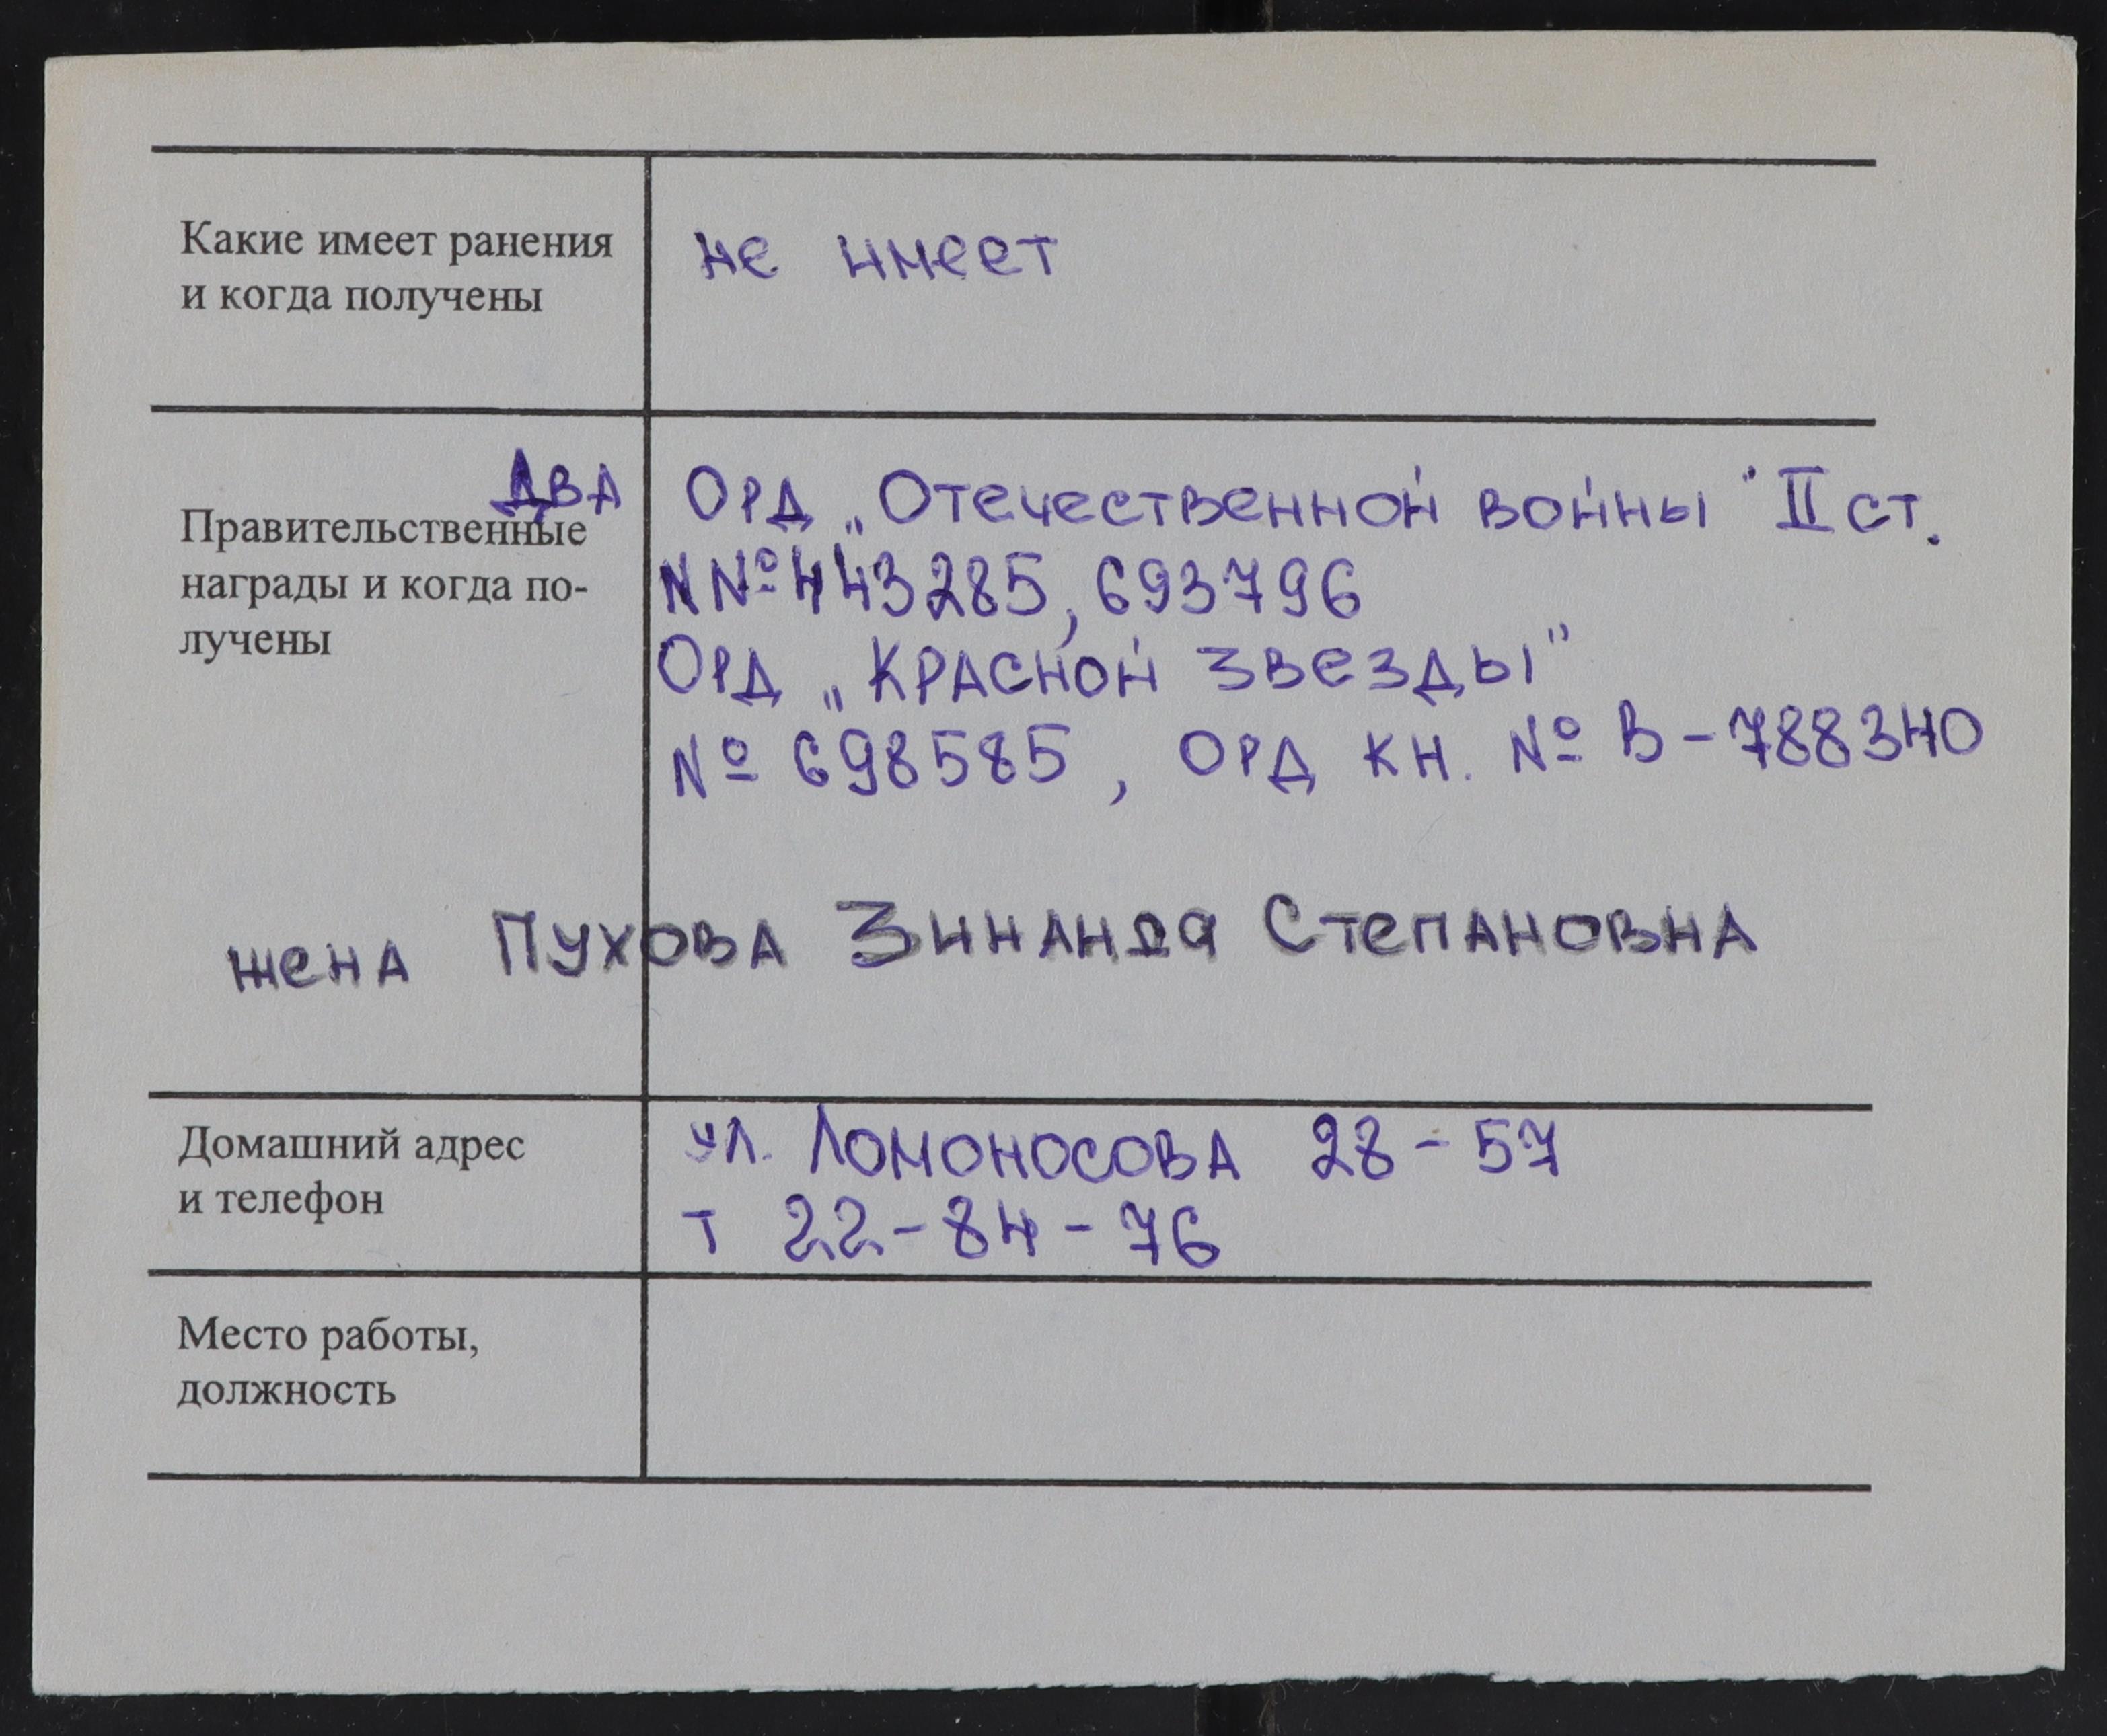 Какие имеет ранения
и когда получены
не имеет
Правительственные
награды и когда по-
лучены
два Орд „Отечественной войны" II ст.
NN° 443285, 693796
Орд „Красной звезды"
N° 698585, орд кн. N° В-788340
жена Пухова Зинаида Степановна
Домашний адрес
и телефон
ул. Ломоносова 28-57
т 22-84-76
Место работы,
должность